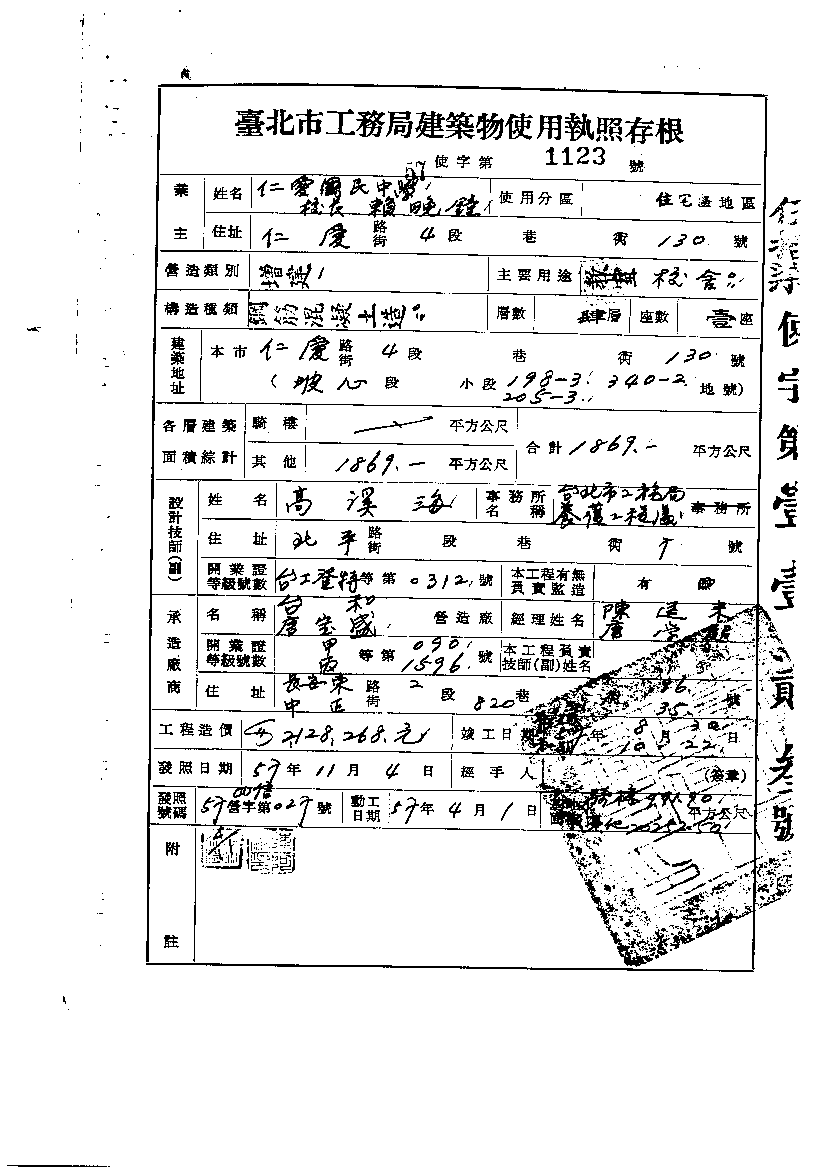 臺北市工務局建築物使用執照存根
57 使字第 1123 號
業主 姓名 仁愛國民中學 校長 賴 使用分區 住宅區地區
住址 仁愛 路街 4 段 巷 衖 130 號
營造類別 增建 主要用途 校舍
構造種類 鋼筋混凝土造 層數 肆層 座數 壹座
建築地址 本市 仁愛 路街 4 段 巷 衖 130 號
(坡心 段 小段 198-3 340-2 205-3 地號)
各層建築面積綜計 騎樓 平方公尺 合計 1869.- 平方公尺
其他 1869.- 平方公尺
設計技師(副) 姓名 高溪 事務所名稱 台北市工務局養護工程處 事務所
住址 北平 路街 段 巷 衖 號
開業證等級號數 台工登特等第 0312 號 本工程有無負責監造 有
承造廠商 名稱 台和 唐宝盛 營造廠 經理姓名 陳 唐
開業證等級號數 甲 丙 等第 090 1596 號 本工程負責技師(副)姓名
住址 長安東 中正 路街 2 段 820 巷 衖 35 號
工程造價 2,128,268.元 竣工日期 57 年 8 月 30 日 10 22
發照日期 57 年 11 月 4 日 經手人 (簽章)
發照號碼 57 營字第 027 號 動工日期 57 年 4 月 1 日 平方公尺
附註
使字第壹壹貳叁號